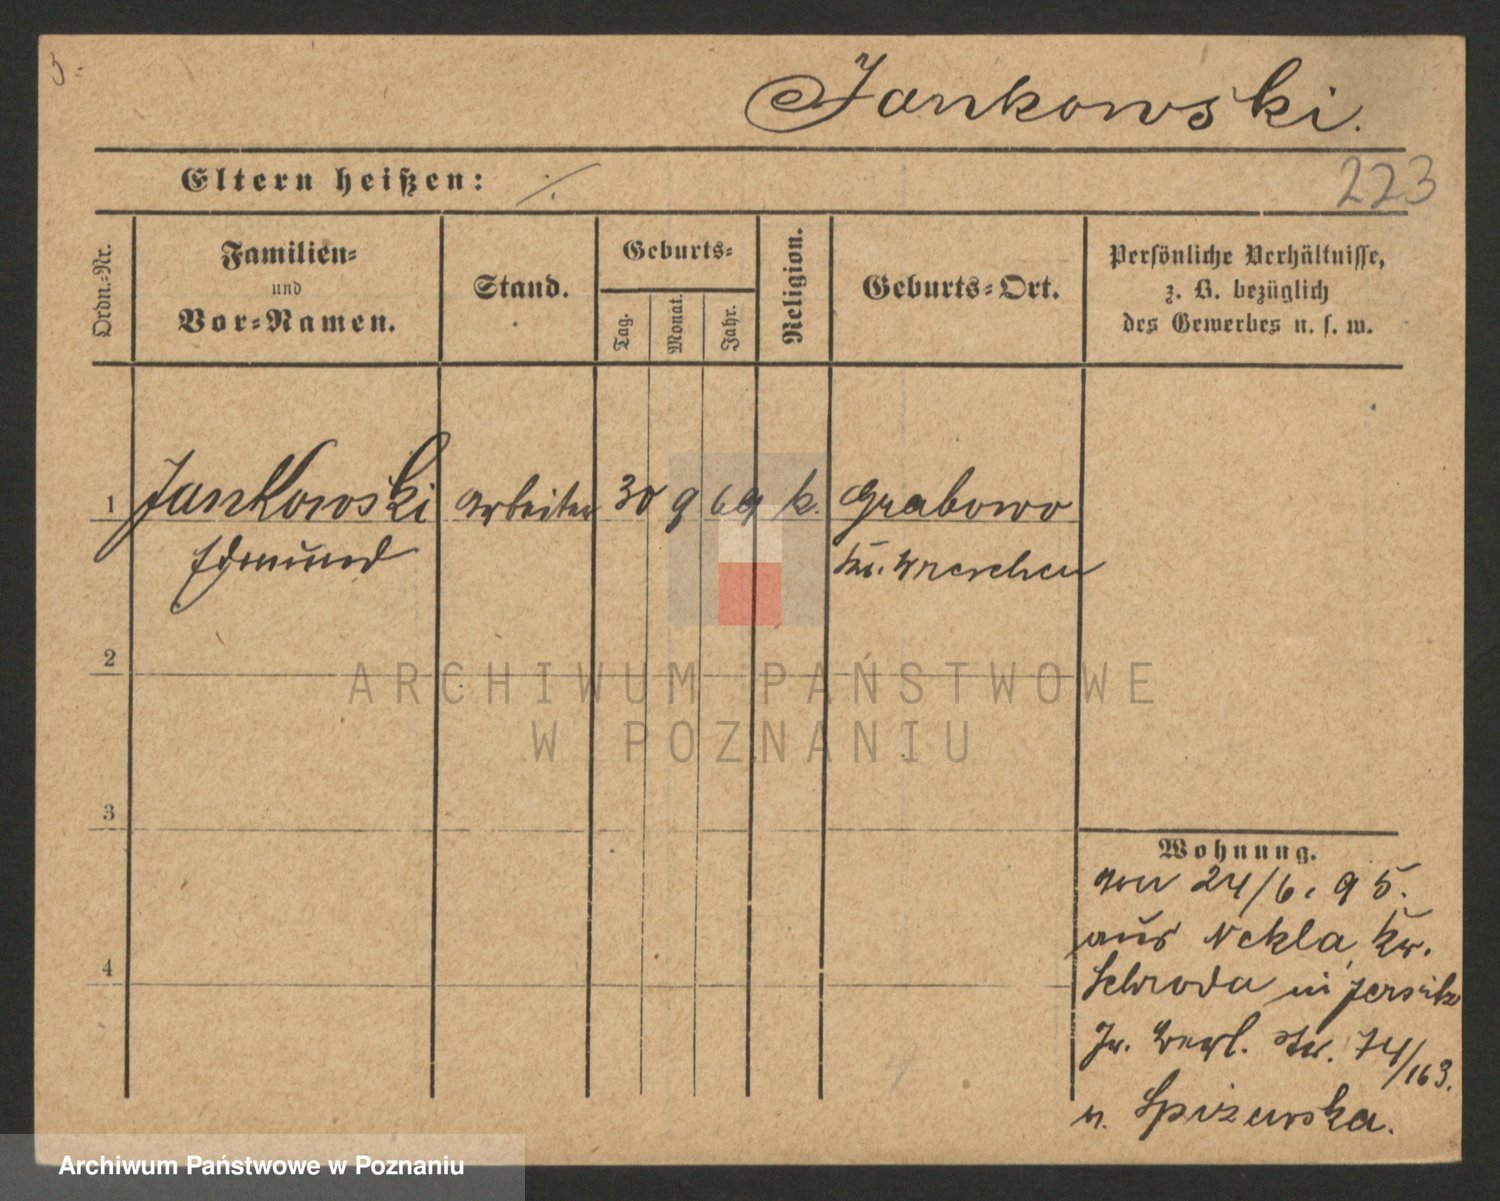 Jankowski.
223
Eltern heißen: ./.
Ordn.-Nr.
Familien-
und
Vor-Namen.
Stand.
Geburts-
Tag.
Monat.
Jahr.
Religion.
Geburts-Ort.
Persönliche Verhältnisse,
z. B. bezüglich
des Gewerbes u. s. w.
1 Jankowski Arbeiter 30 9 69 k. Grabowo
Edmund Kr. Wreschen
2
ARCHIWUM PAŃSTWOWE
W POZNANIU
3
Wohnung.
von 24/6. 95.
aus Nekla, Kr.
4
Schroda in Jersitz
Gr. Berl. Str. 74/163.
Spizewska.
Archiwum Państwowe w Poznaniu